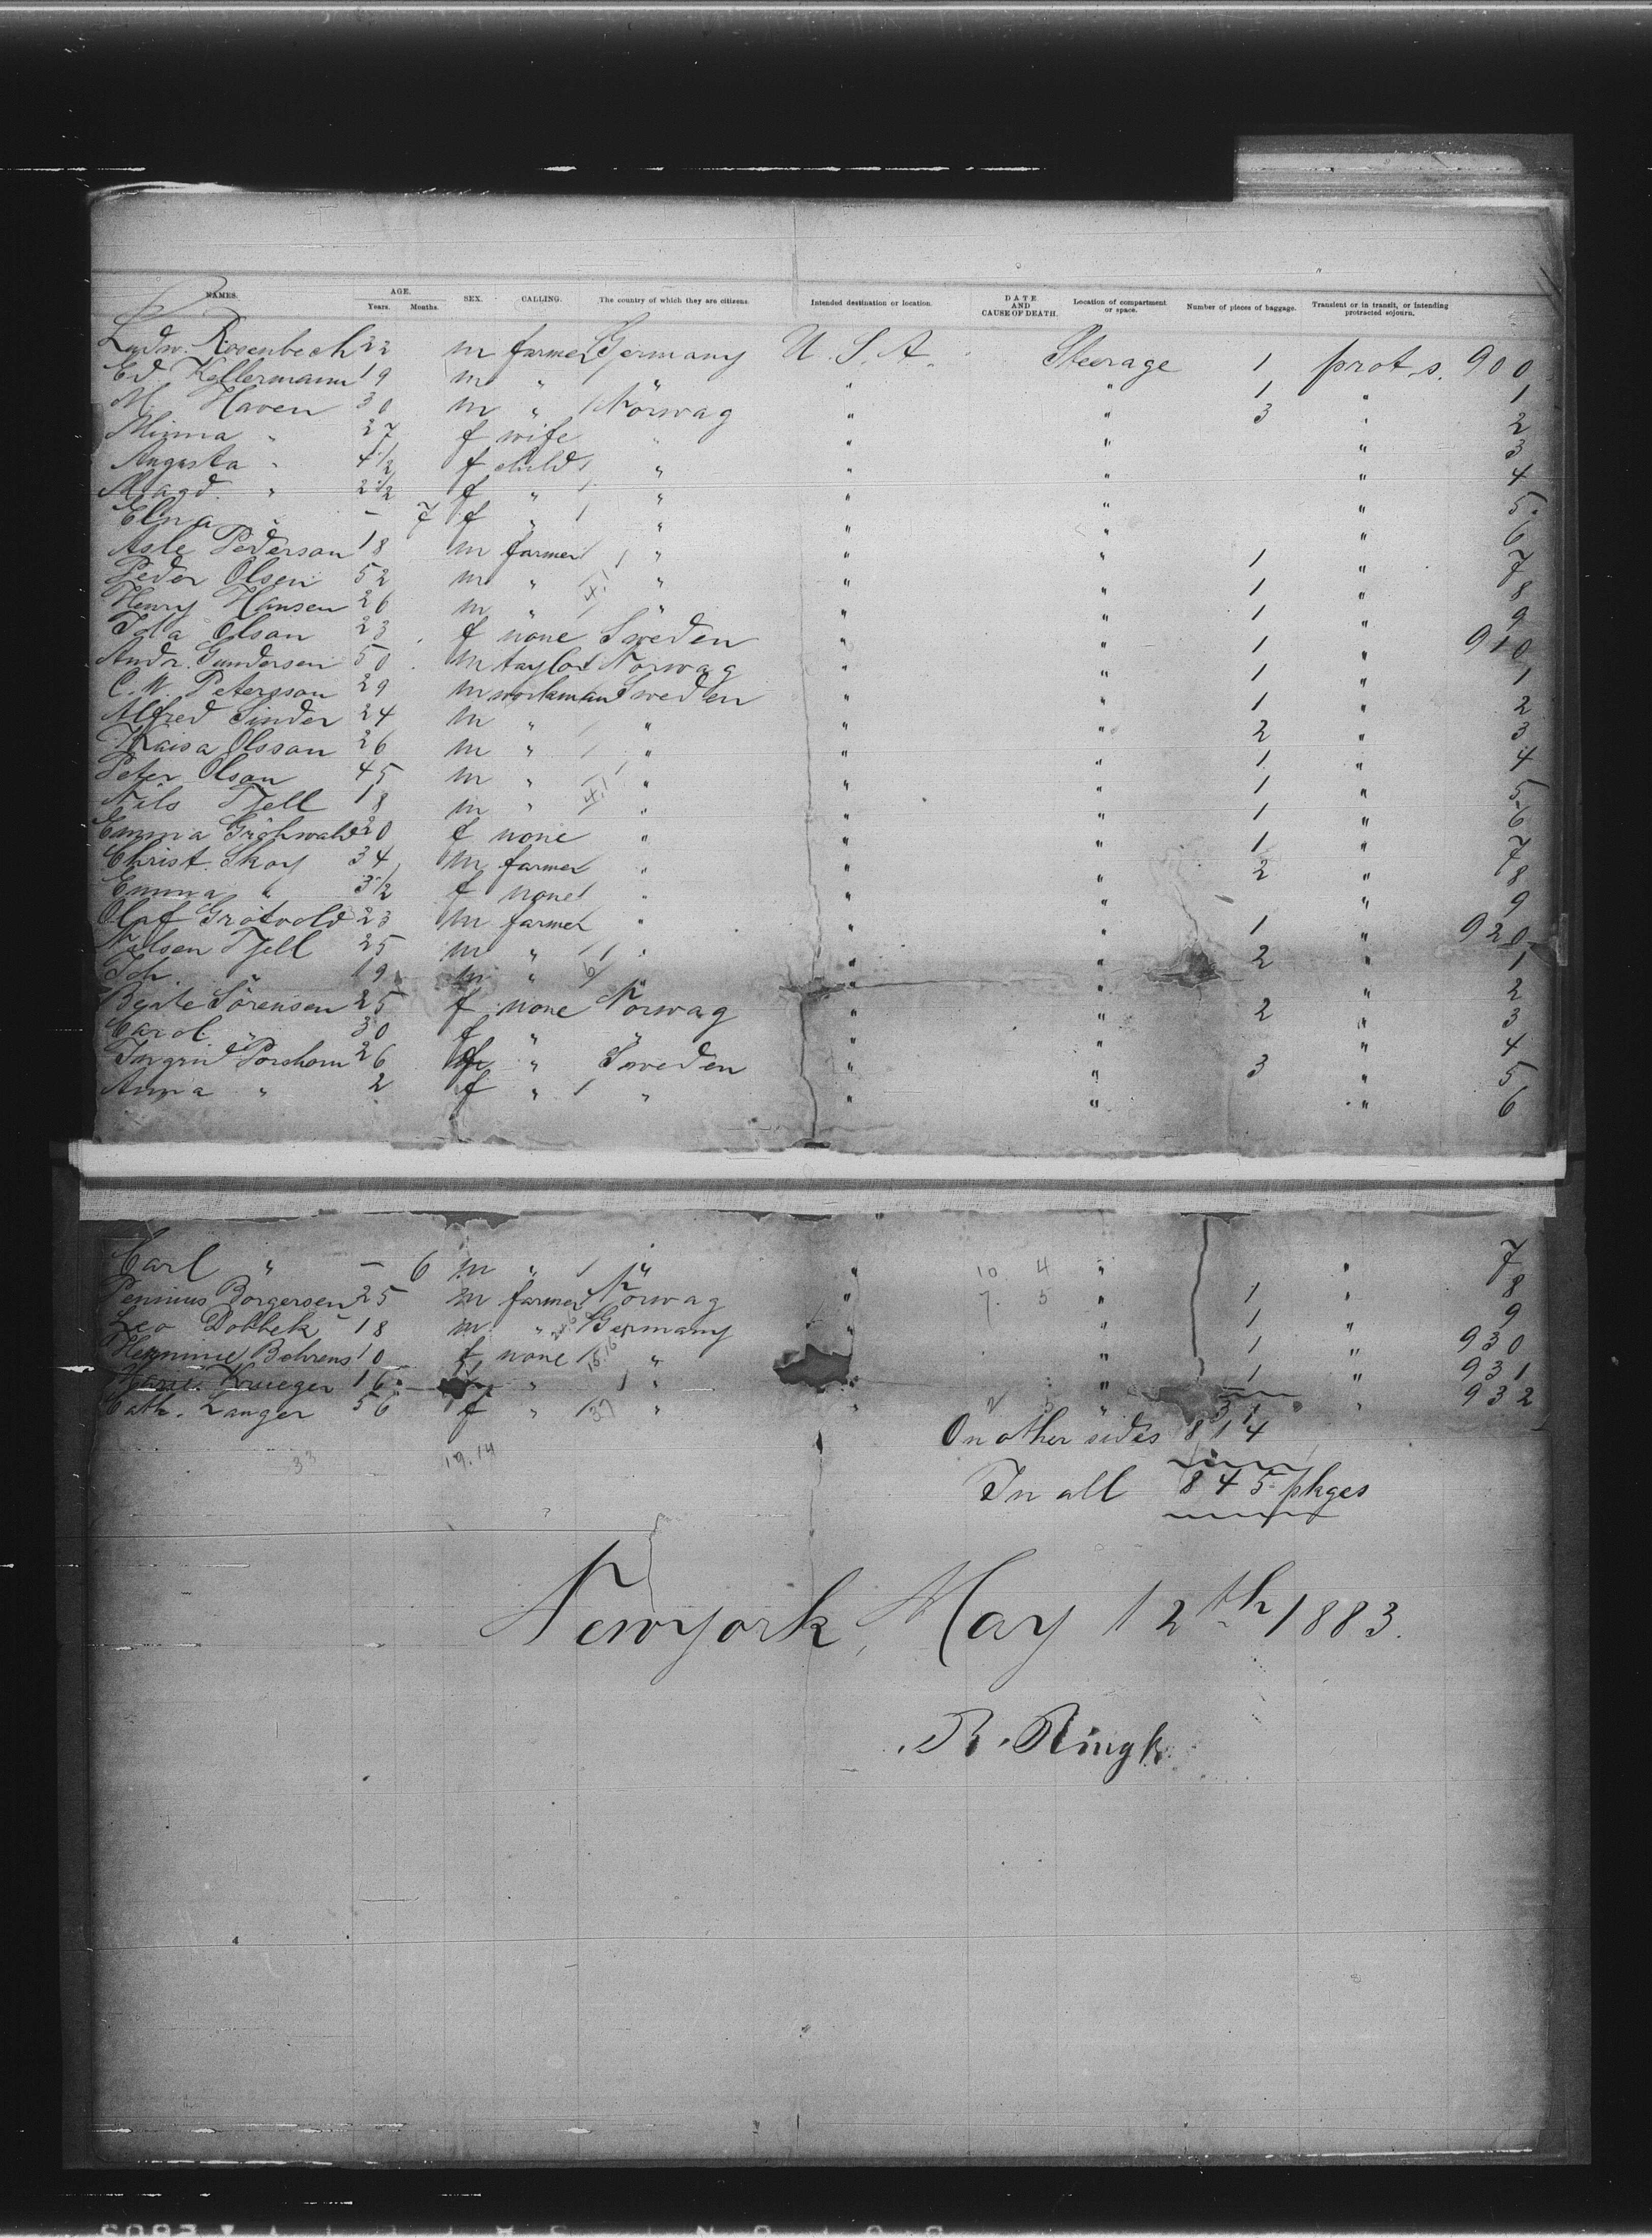 NAMES. AGE. Years. Months. SEX. CALLING. The country of which they are citizens. Intended destination or location. DATE AND CAUSE OF DEATH. Location of compartment or space. Number of pieces of baggage. Transient or in transit, or intending protracted sojourn.
Ludw. Rosenbech 22 m farmer Germany U. S. A. Steerage 1 prot. s. 900
Ed. Kellermann 19 m " " " " 1 " 1
M. Haven 30 m " Norwag " " 3 " 2
Minna " 27 f wife " " " " 3
Augusta " 4 1/2 f child " " " " 4
Magd. " 2 1/2 f " " " " " 5
Elna " – 7 f " " " " " 6
Asle Pederson 18 m farmer " " " 1 " 7
Peder Olsen 52 m " " " " 1 " 8
Henry Hansen 26 m " " " " 1 " 9
Ida Olson 23 f none Sweden " " 1 " 910
Andr. Gundersen 50 m taylor Norwag " " 1 " 1
C. W. Petersson 29 m workman Sweden " " 1 " 2
Alfred Sinder 24 m " " " " 2 " 3
Kaisa Olsson 26 m " " " " 1 " 4
Peter Olson 45 m " " " " 1 " 5
Nils Tjell 18 m " " " " 1 " 6
Emma 20 f none " " " 1 " 7
Christ. Skoy 34 m farmer " " " 2 " 8
Emma " 3 1/2 f none " " " " 9
Olaf Grötvold 23 m farmer " " " 1 " 920
Nilsen Tjell 25 m " " " " 2 " 1
Joh. " 19 m " " " " " 2
Beate Sörensen 25 f none Norwag " " 2 " 3
Carol. " 30 f " " " " " 4
Ingrid Porshorn 26 f " Sweden " " 3 " 5
Anna " 2 f " " " " " 6
Carl " – 6 m " " " 10 4 " " 7
Borgersen 25 m farmer Norwag " 7. 5 " 1 " 8
Leo Dobbek 18 m " Germany " " 1 " 9
Hermine Behrens 10 f none " " 1 " 930
Marie Krueger 16 " " " 1 " 931
Cath. Langer 56 f " " " " " 932
31
33 19.14 On other sides 814
In all 845 pkges
Newyork, May 12th 1883.
R. Ringk